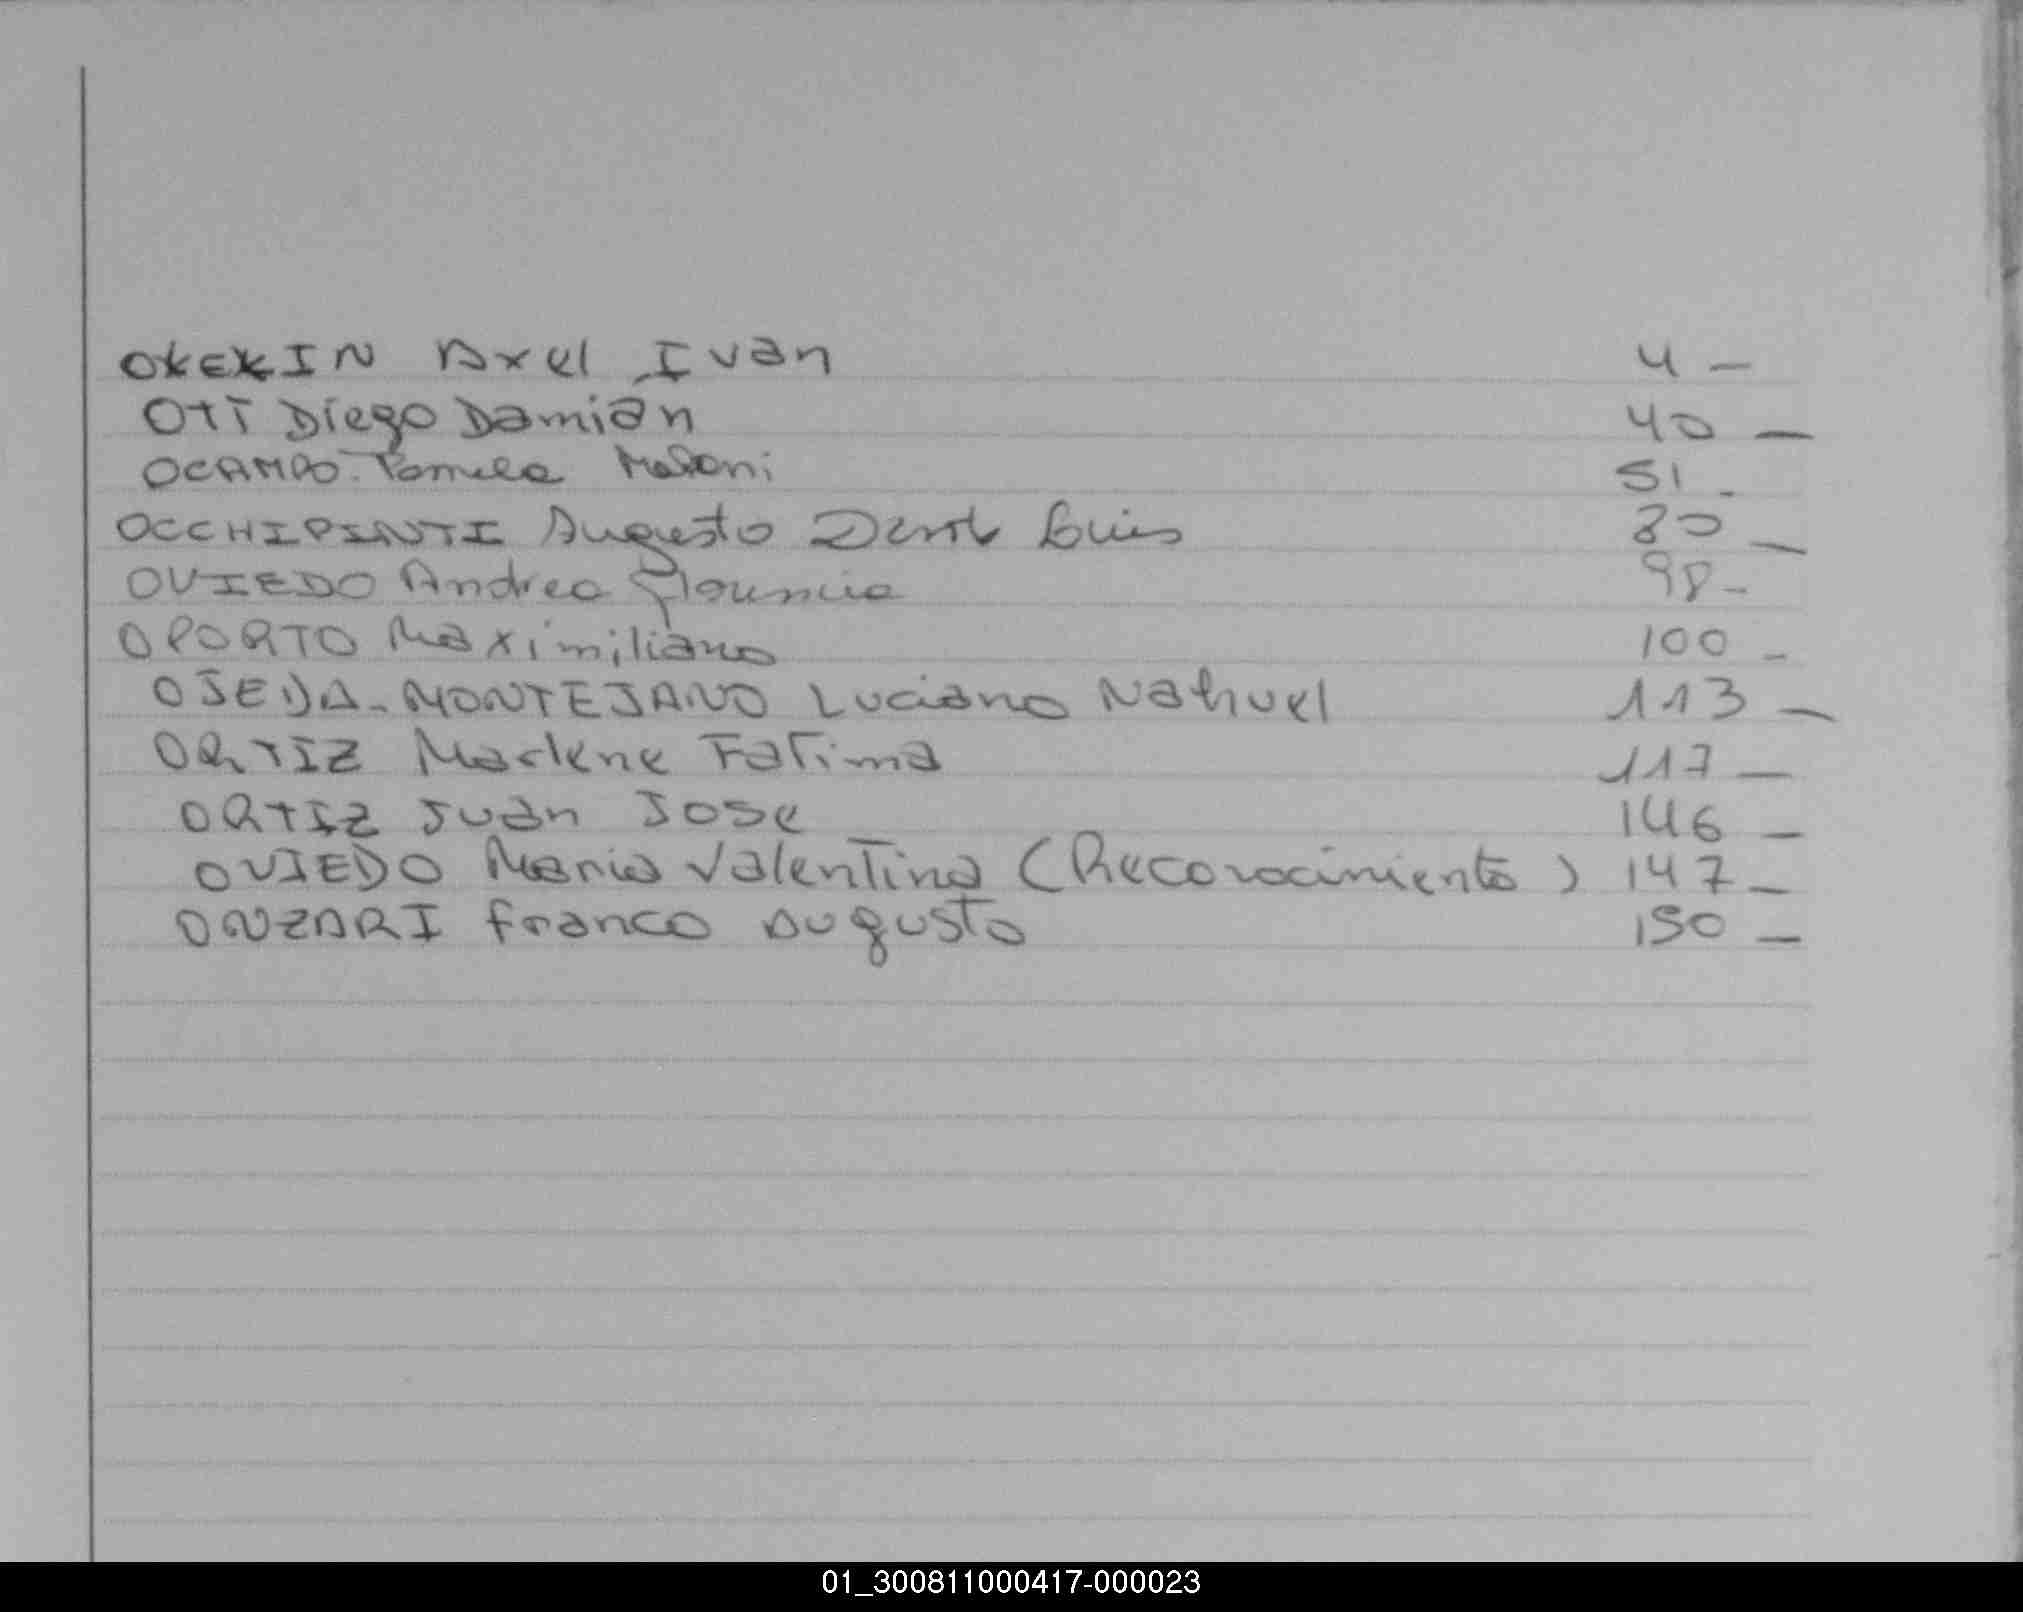 OKEKIN Axel Ivan 4 -
OTT Diego Damián 40 -
OCAMPO. Pamela Melani 51 -
OCCHIPINTI Augusto Luis 80 -
OVIEDO Andrea Florencia 98 -
OPORTO Maximiliano 100 -
OJEDA-MONTEJANO Luciano Nahuel 113 -
ORTIZ Marlene Fatima 117 -
ORTIZ Juan Jose 146 -
OVIEDO Maria Valentina (Reconocimiento) 147 -
ONZARI Franco Augusto 150 -
01_300811000417-000023